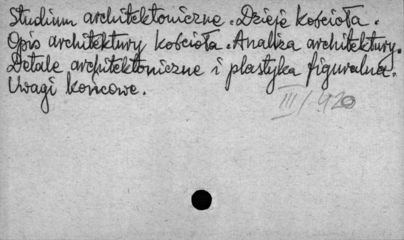 Studium architektoniczne. Dzieje kościoła.
Opis architektury kościoła. Analiza architektury.
Detale architektoniczne i plastyka figuralna.
Uwagi końcowe.
III/420